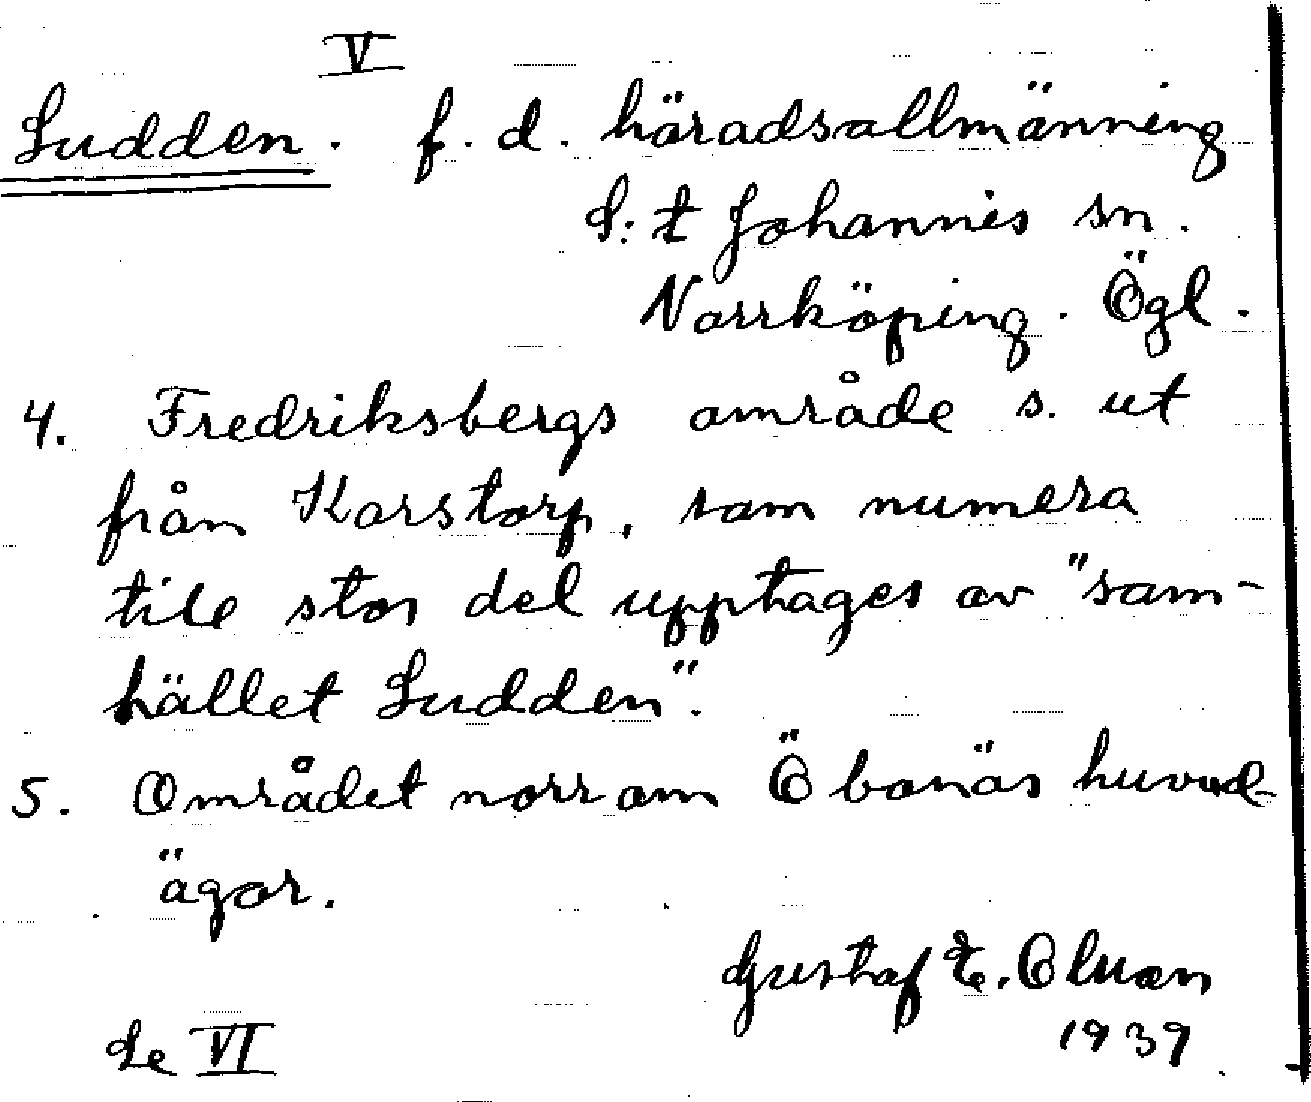 V
Sudden. f. d. häradsallmänning
S:t Johannis sn.
Norrköping. Ögl.
4. Fredriksbergs område s. ut
från Korstorp, som numera
till stor del upptages av "sam-
hället Sudden".
5. Området norr om Öbonäs huvud-
ägor.
Gustaf E. Olsson
1939
Se VI